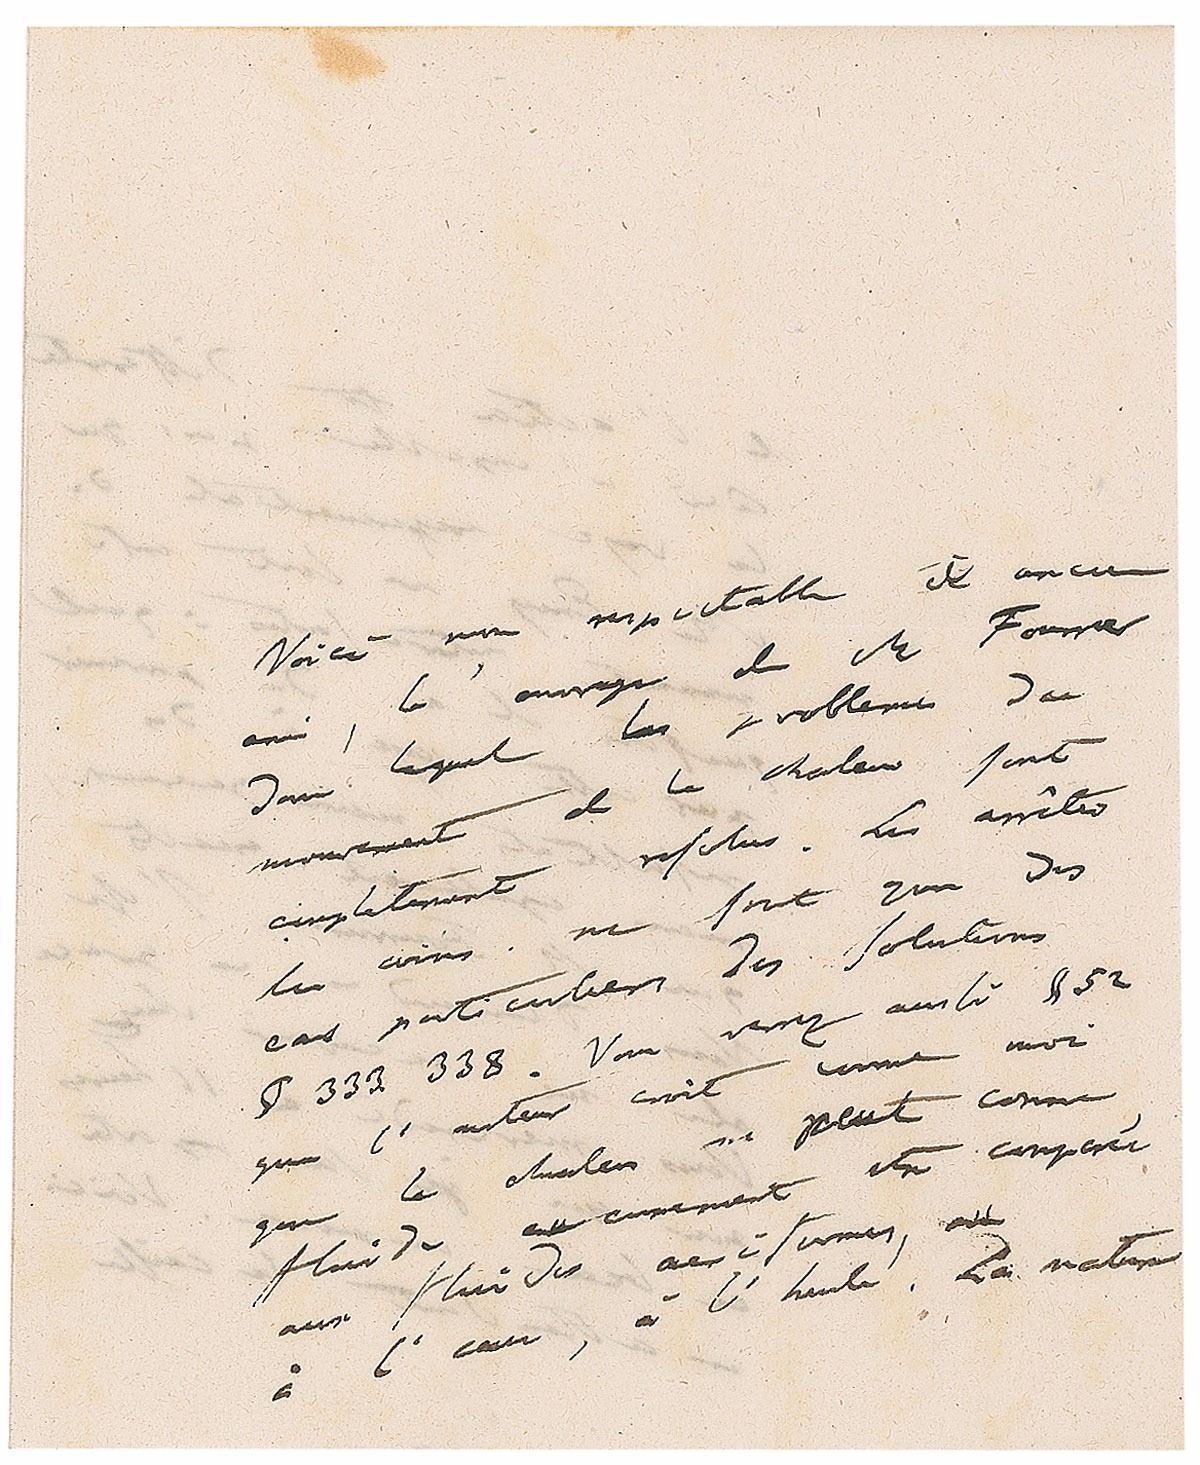 Voici mon respectable et ancien
ami, l'ouvrage de Mr Fourrier
dans lequel les problemes du
mouvement de la chaleur sont
complètement resolus. Les arrêtes
les coins. ne sont que des
cas particuliers des solutions
§ 333 338. Vous verrez aussi § 52
que l'auteur croit comme moi
que la chaleur ne peut comme
fluide aucunement être comparée
aux fluides aeriformes,
à l'eau, à l'huile. La nature